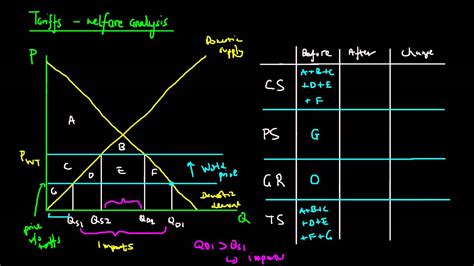 Tariffs - welfare analysis
P
Domestic supply
A
B
P WT
C
D
E
F
G
World price
price w/o tariffs
Domestic demand
QS1
QS2
QD2
QD1
Q
imports
QD1 > QS1
↳ imports
Before
After
Change
CS
A+B+C
+D+E
+F
PS
G
GR
0
TS
A+B+C
+D+E
+F+G